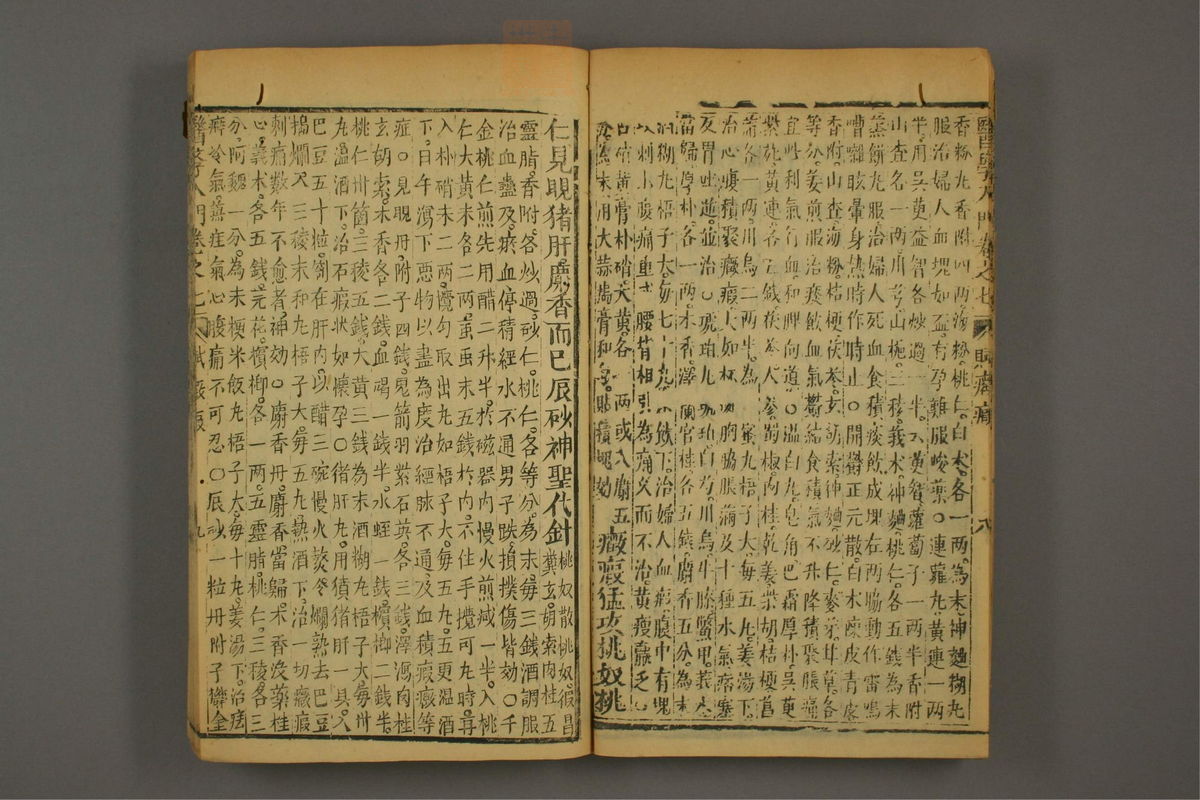 香粉丸香附四两海粉桃仁白朮各一两為末神麯糊丸
服治婦人血塊如盃有孕難服峻藥○連蘿丸黄連一两
半用吳茱益智各炒過一半蘿蔔子一两半香附
山查各一两川芎山梔三稜莪术神麯桃仁各五錢為末
蒸餅丸服治婦人死血食積痰飲成塊在两脇動作雷鳴
嘈囃眩暈身熱時作時止○開鬱正元散白朮陳皮青皮
香附山查海粉桔梗茯苓玄胡索神麯砂仁麥芽甘草各
等分姜煎服治痰飲血氣鬱結食積氣不升降積聚脹痛
宜此利氣行血和脾向道○溫白丸皂角巴霜厚朴吳茱
紫菀黄連各五錢茯苓人參蜀椒肉桂乾姜柴胡桔梗菖
蒲各一两川烏二两半為末蜜丸梧子大每五丸姜湯下
治心腹積聚癥瘕大如杯胸脇脹滿及十種水氣痞塞
反胃吐逆並治○琥珀丸琥珀白芍川烏牛膝鱉甲莪朮
當歸厚朴各一两木香澤蘭官桂各五錢麝香五分為末
糊丸梧子大每七十丸下治婦人血瘕腹中有塊
刺小腹痛重腰背相引為痛久而不治黄瘦羸乏
膏朴硝大黄各一两或入麝五
為末用大蒜搗膏和貼積塊効 癥瘕猛攻桃奴桃
仁見晛猪肝麝香而已辰砂神聖代針 桃奴散桃奴猳鼠糞玄胡索肉桂五
靈脂香附各炒過砂仁桃仁各等分為末每三錢酒調服
治血蠱及瘀血停積經水不通男子跌損撲傷皆効○千
金桃仁煎先用醋二升半於磁器内慢火煎减一半入桃
仁大黄末各二两䖟虫末五錢於内不住手攪可丸時再
入朴硝末二两攪勻取出丸如梧子大每五丸五更溫酒
下日午瀉下惡物以盡為度治經脉不通及血積瘕癥等
症○見晛丹附子四錢鬼箭羽紫石英各三錢澤瀉肉桂
玄胡索木香各二錢血竭一錢半水蛭一錢檳榔二錢半
桃仁卅箇三稜五錢大黄三錢為末酒糊丸梧子大每卅
丸溫酒下治石瘕状如懷孕○猪肝丸用猪肝一具入
巴豆五十粒劄在肝内以醋三碗慢火熬令爛熟去巴豆
搗爛入三稜末和丸梧子大每五丸熱酒下治一切癥瘕
刺痛数年不愈者神効○麝香丹麝香當歸木香沒藥桂
心莪朮各五錢芫花檳榔各一两五靈脂桃仁三稜各三
分阿魏一分為末粳米飯丸梧子大每十丸姜湯下治痃
癖冷氣癥症氣心腹痛不可忍○辰砂一粒丹附子鬱金
醫學入門卷之七 八
醫學入門卷之七 九